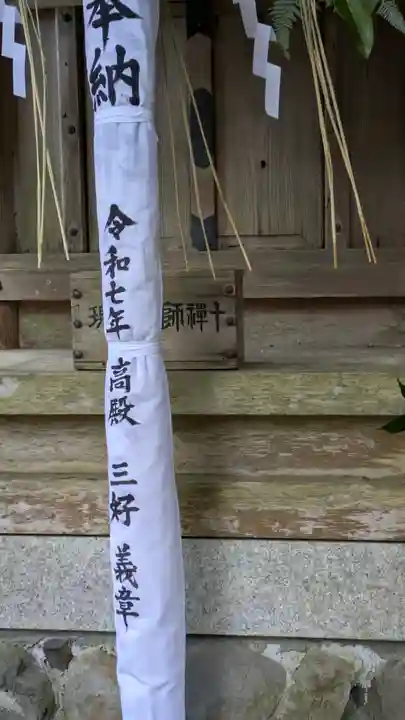 奉納
令和七年
高殿
三好
義章
十禅師
現